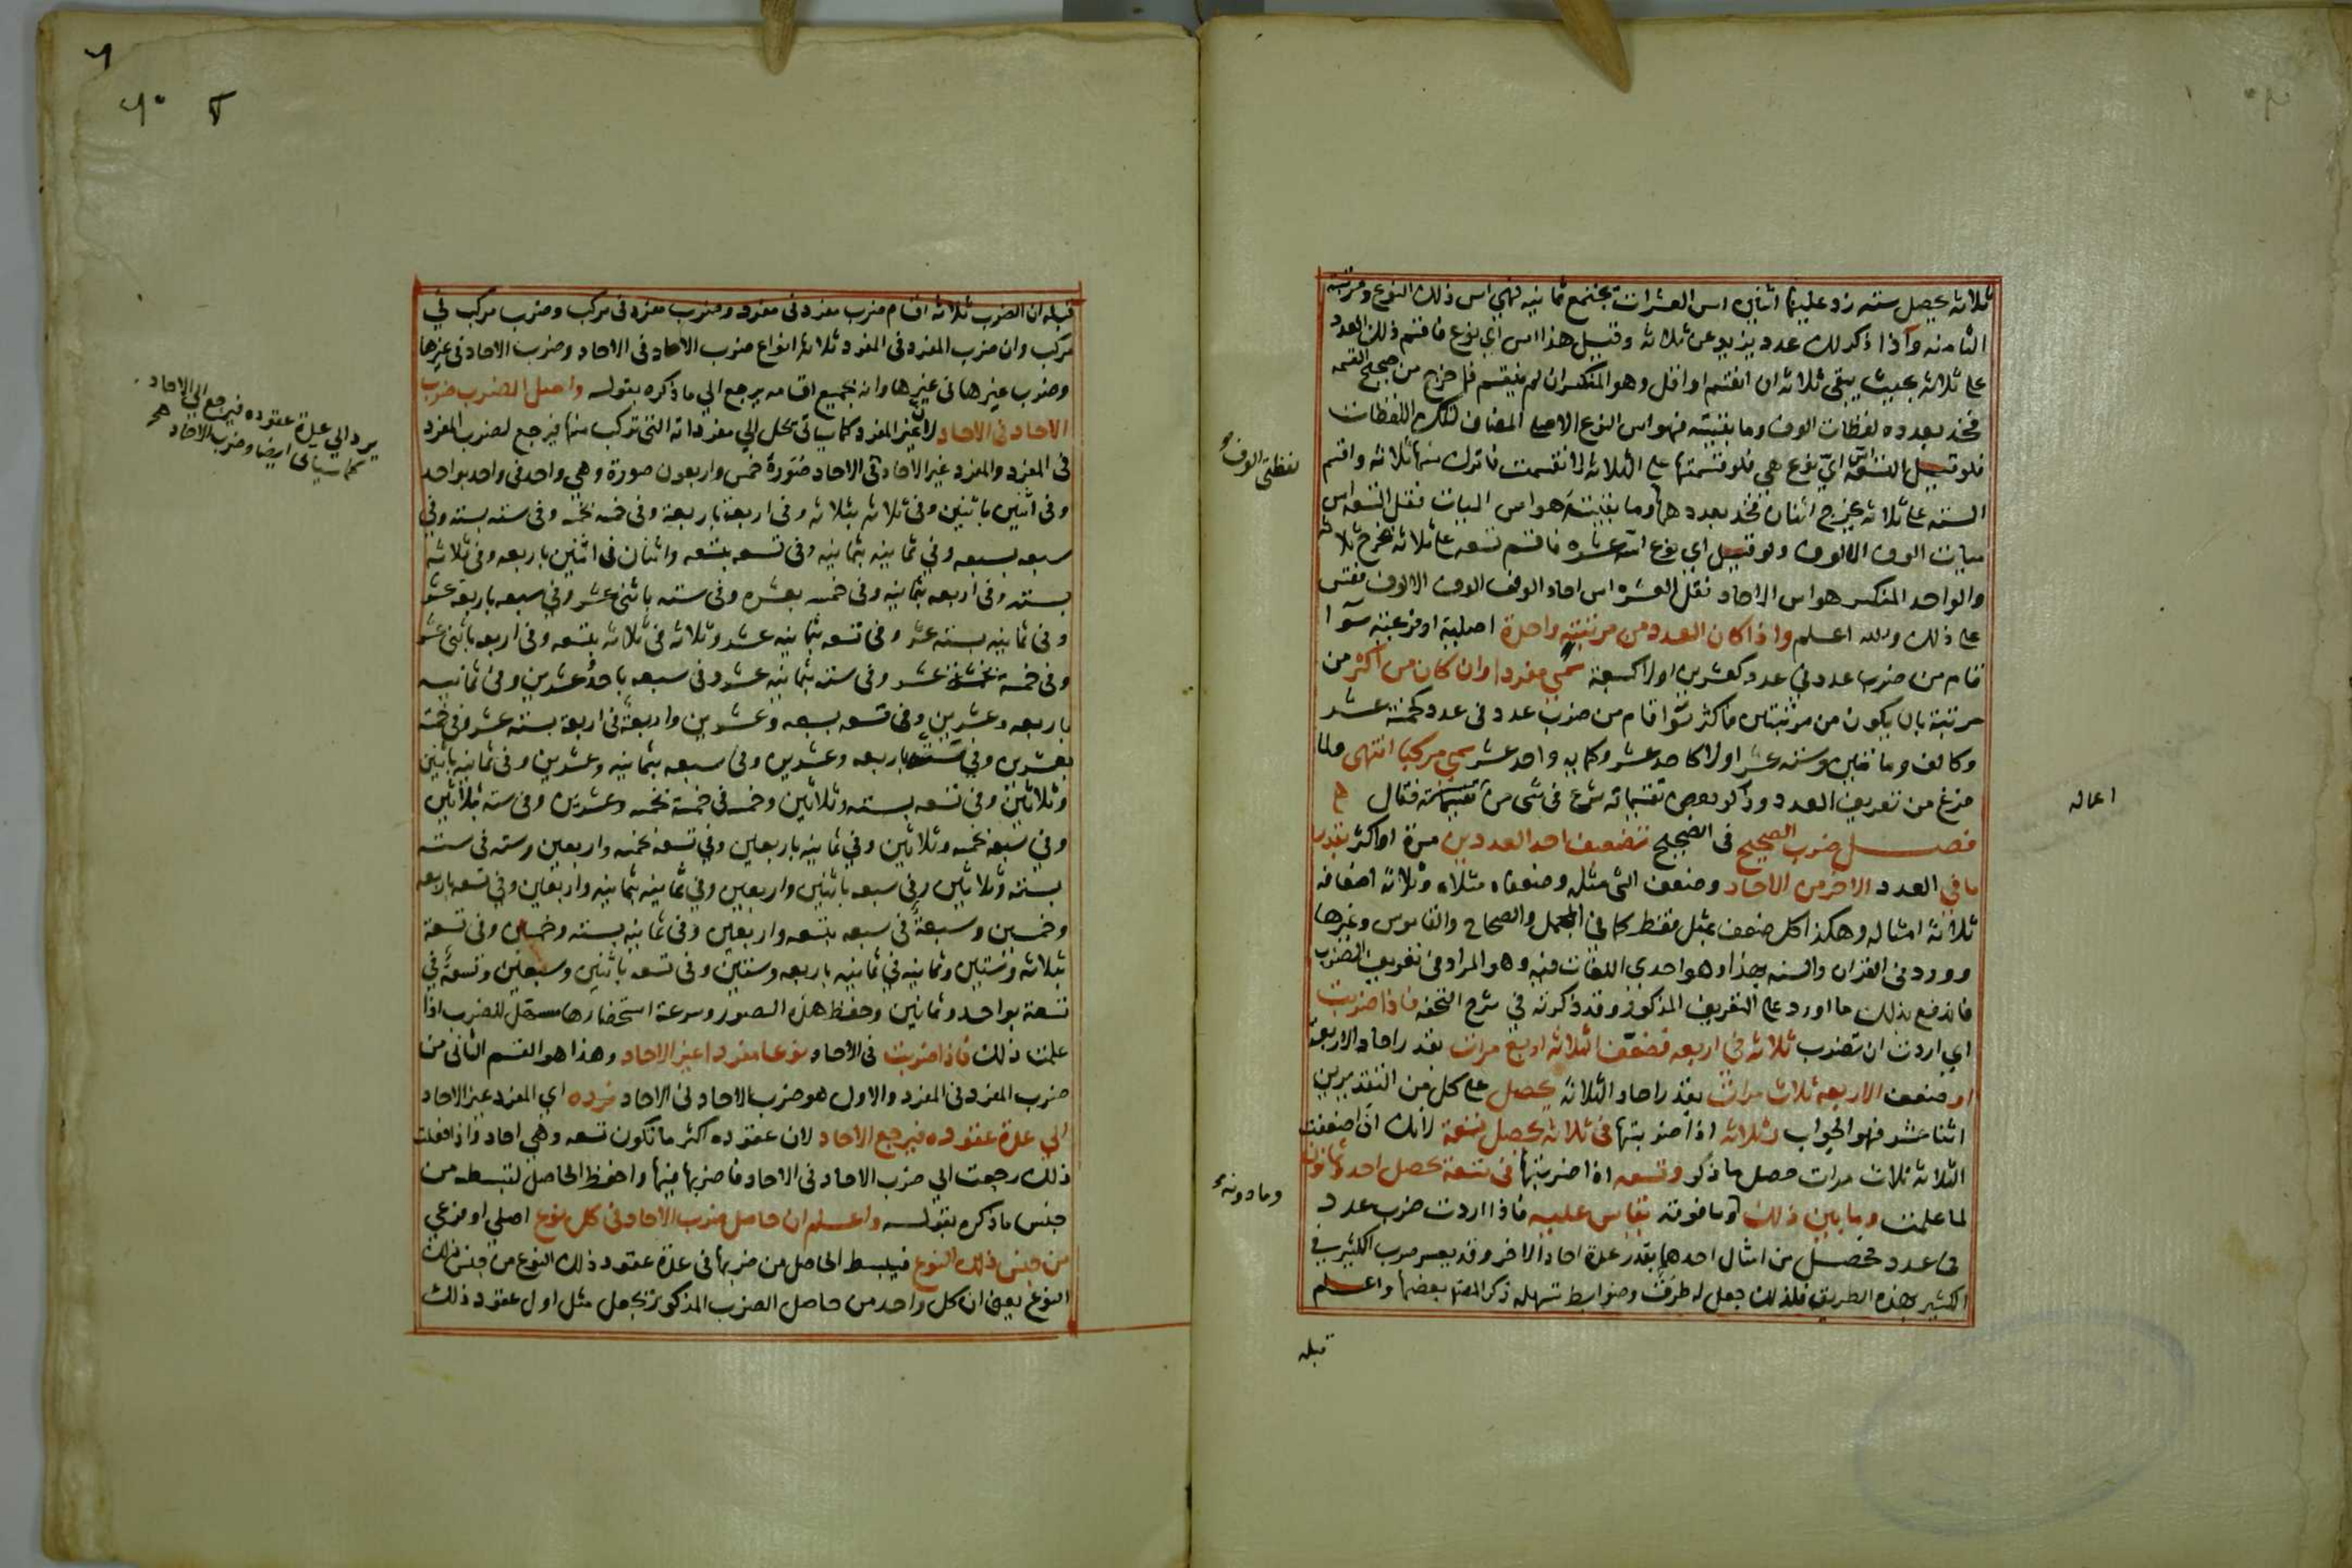 ثلاثه يحصل سته زد عليها اثنين اس العشرات يجتمع ثمانيه فهي اس ذلك النوع ومرتبته
الثامنه واذا ذكر لك عدد يزيد عن ثلاثه وقيل هذا اس اي نوع فاقسم ذلك العدد
على ثلاثه بحيث يبقى ثلاثه ان انقسم او اقل وهو المنكسر ان لم ينقسم فما خرج من صحيح القسمه
فخذ بعدده لفظات الوف وما بقيته فهو اس النوع الاصلي المضاف لتلك اللفظات
فلو قيل التسعه اس اي نوع هي فلو قسمتها على الثلاثه لانقسمت فاترك منها ثلاثه واقسم
السته على ثلاثه يخرج اثنان فخذ بعددهما وما بقيته هو اس الميات فقل التسعه اس
ميات الوف الالوف ولو قيل اي نوع اسه عشره فاقسم تسعه على ثلاثه يخرج ثلاثه
والواحد المنكسر هو اس الاحاد فقل العشره اس احاد الوف الوف الالوف فقس
على ذلك والله اعلم واذا كان العدد من مرتبة واحدة اصلية او فرعية سوا
قام من ضرب عدد في عدد كعشرين اولا كسبعة سمي مفردا وان كان من اكثر من
مرتبة بان يكون من مرتبتين فاكثر سوا قام من ضرب عدد في عدد كخمسة عشر
وكالف ومائتين وستة عشر اولا كاحد عشر وكمايه واحد عشر سمي مركبا انتهى ولما
فرغ من تعريف العدد وذكر بعض تقسيماته شرع في شي من فقال
فصل ضرب الصحيح في الصحيح تضعيف احد العددين مرة او اكثر بقدر
ما في العدد الاخر من الاحاد وضعف الشي مثله وضعفاه مثلاه وثلاثة اضعافه
ثلاثة امثاله وهكذا كل ضعف بمثل فقط كما في المجمل والصحاح والقاموس وغيرها
وورد في القران والسنه بهذا وهو احدى اللغات فيه وهو المراد في تعريف الضرب
فاندفع بذلك ما اورد على التعريف المذكور وقد ذكرته في شرح التحفه فاذا ضربت
اي اردت ان تضرب ثلاثه في اربعه فضعف الثلاثه اربع مرات بقدر احاد الاربعة
او ضعف الاربعه ثلاث مرات بقدر احاد الثلاثة يحصل على كل من التقديرين
اثنا عشر فهو الجواب وثلاثه اذا ضربتها في ثلاثه يحصل تسعة لانك ان اضعفت
الثلاثه ثلاث مرات حصل ما ذكر وتسعه اذا ضربتها في تسعة يحصل احد وثمانون
لما علمت وما بين ذلك وما فوقه يقاس عليه فاذا اردت ضرب عدد
في عدد فحصل من امثال احدهما بقدر عدة احاد الاخر وقد يعسر ضرب الكثير في
الكثير بهذه الطريق فلذلك جعل له طرق وضوابط تسهله ذكر المصنف بعضها واعلم
قبله
لفظتي الوف
وما دونه
اعماله
قبله ان الضرب ثلاثه اقسام ضرب مفرد في مفرد وضرب مفرد في مركب وضرب مركب في
مركب وان ضرب المفرد في المفرد ثلاثة انواع ضرب الاحاد في الاحاد وضرب الاحاد في غيرها
وضرب غيرها في غيرها وان جميع اقسامه يرجع الي ما ذكره بقوله واصل الضرب ضرب
الاحاد في الاحاد لان غير المفرد كما سياتي يحل الي مفرداته التي تركب منها فيرجع لضرب المفرد
في المفرد والمفرد غير الاحاد في الاحاد صورة خمس واربعون صورة وهي واحد في واحد بواحد
وفي اثنين باثنين وفي ثلاثه بثلاثه وفي اربعة باربعة وفي خمسه بخمسه وفي سته بسته وفي
سبعه بسبعه وفي ثمانيه بثمانيه وفي تسعه بتسعه واثنان في اثنين باربعه وفي ثلاثه
بسته وفي اربعه بثمانيه وفي خمسه بعشره وفي سته باثني عشر وفي سبعه باربعة عشر
وفي ثمانيه بسته عشر وفي تسعه بثمانيه عشر وثلاثه في ثلاثه بتسعه وفي اربعه باثني عشر
وفي خمسة بخمسة عشر وفي سته بثمانيه عشر وفي سبعه باحد وعشرين وفي ثمانيه
باربعه وعشرين وفي تسعه بسبعه وعشرين واربعة في اربعة بسته عشر وفي خمسة
بعشرين وفي سته باربعه وعشرين وفي سبعه بثمانيه وعشرين وفي ثمانيه باثنين
وثلاثين وفي تسعه بسته وثلاثين وخمسه في خمسة بخمسه وعشرين وفي سته بثلاثين
وفي سبعه بخمسه وثلاثين وفي ثمانيه باربعين وفي تسعه بخمسه واربعين وسته في سته
بسته وثلاثين وفي سبعه باثنين واربعين وفي ثمانيه بثمانيه واربعين وفي تسعه باربعه
وخمسين وسبعة في سبعه بتسعه واربعين وفي ثمانيه بسته وخمسين وفي تسعة
بثلاثه وستين وثمانيه في ثمانيه باربعه وستين وفي تسعه باثنين وسبعين وتسعة في
تسعة بواحد وثمانين وحفظ هذه الصور وسرعة استحضارها مسهل للضرب اذا
علمت ذلك فاذا ضربت في الاحاد نوعا مفردا غير الاحاد وهذا هو القسم الثاني من
ضرب المفرد في المفرد والاول هو ضرب الاحاد في الاحاد فرده اي المفرد غير الاحاد
الي عدة عقوده فيرجع الاحاد لان عقوده اكثر ما تكون تسعه وهي احاد واذا فعلت
ذلك رجعت الي ضرب الاحاد في الاحاد فاضربها فيها واحفظ الحاصل لتبسطه من
جنس ما ذكره بقوله واعلم ان حاصل ضرب الاحاد في كل نوع اصلي او فرعي
من جنس ذلك النوع فيبسط الحاصل من ضربها في عدة عقود ذلك النوع من جنس ذلك
النوع يعني ان كل واحد من حاصل الضرب المذكور تجعل مثل اول عقود ذلك
يرد الي عدة عقوده فيرجع الي الاحاد
كما سياتي ايضا وضرب الاحاد